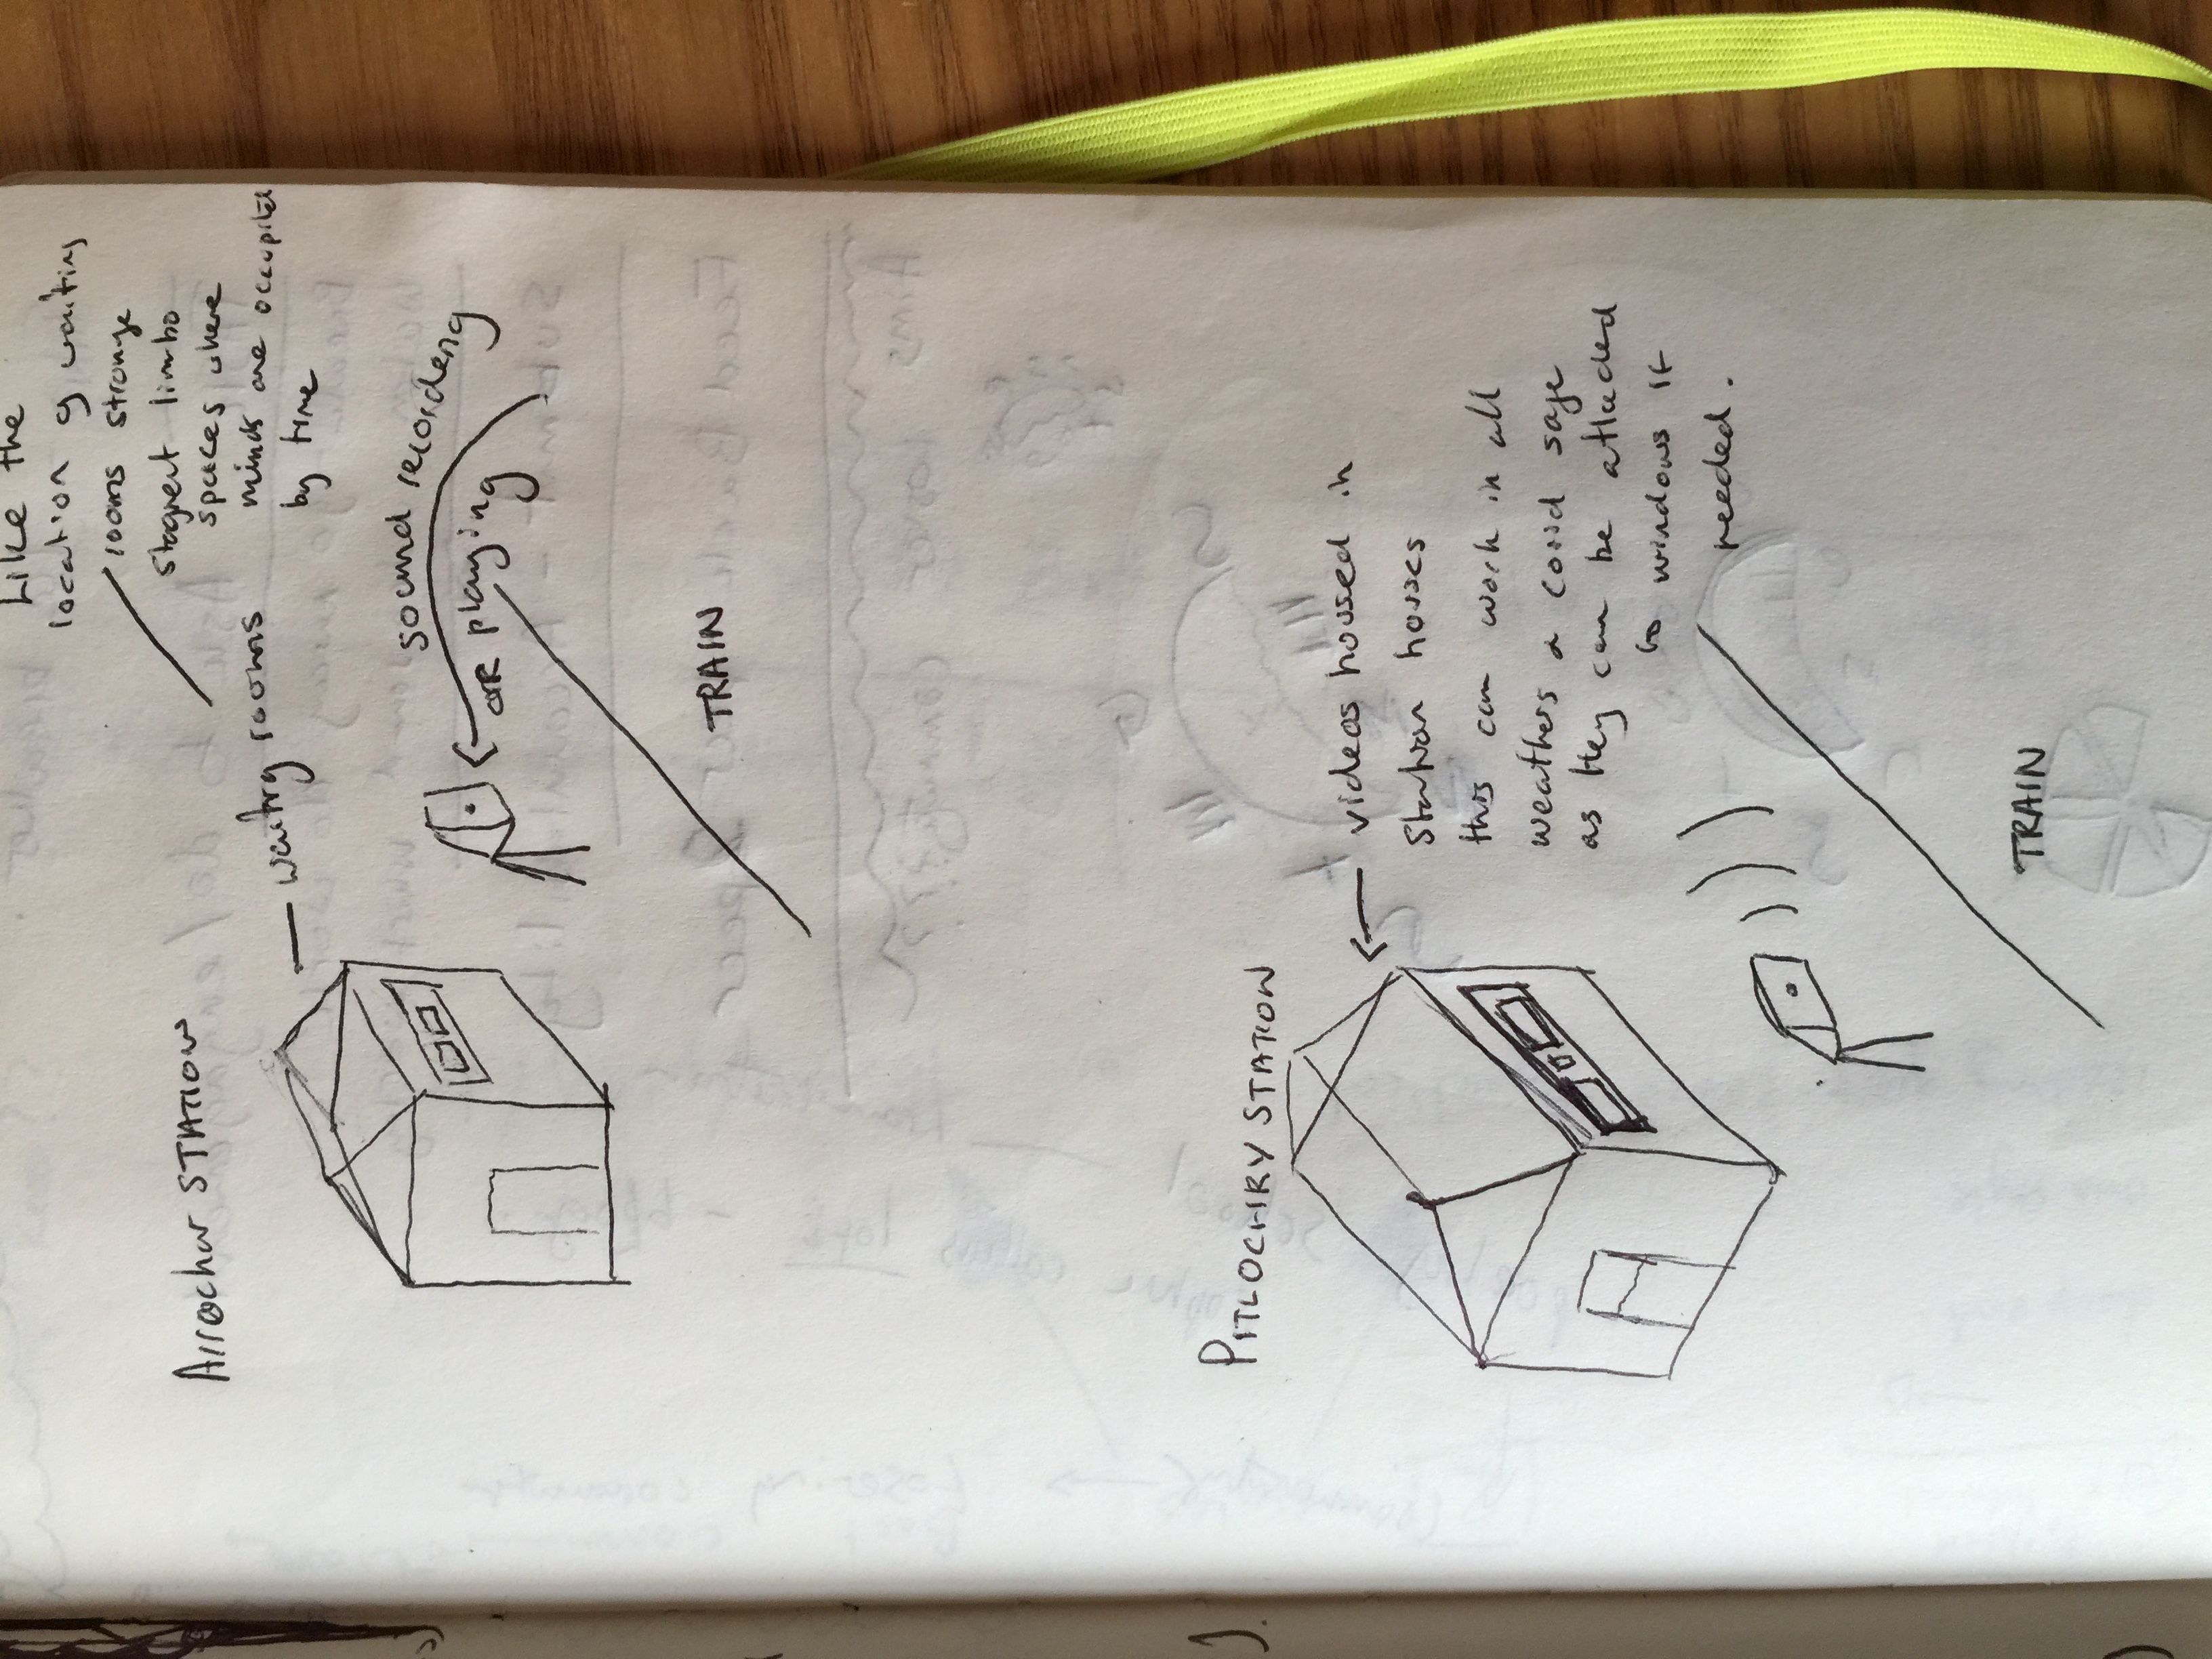 ARROCHAR STATION
Like the
location of waiting
rooms strange
stagnent limbo
spaces where
minds are occupied
by time
waiting rooms
sound recording
OR playing
TRAIN
PITLOCHRY STATION
videos housed in
station houses
this can work in all
weathers
as they can be attached
to windows if
needed.
TRAIN